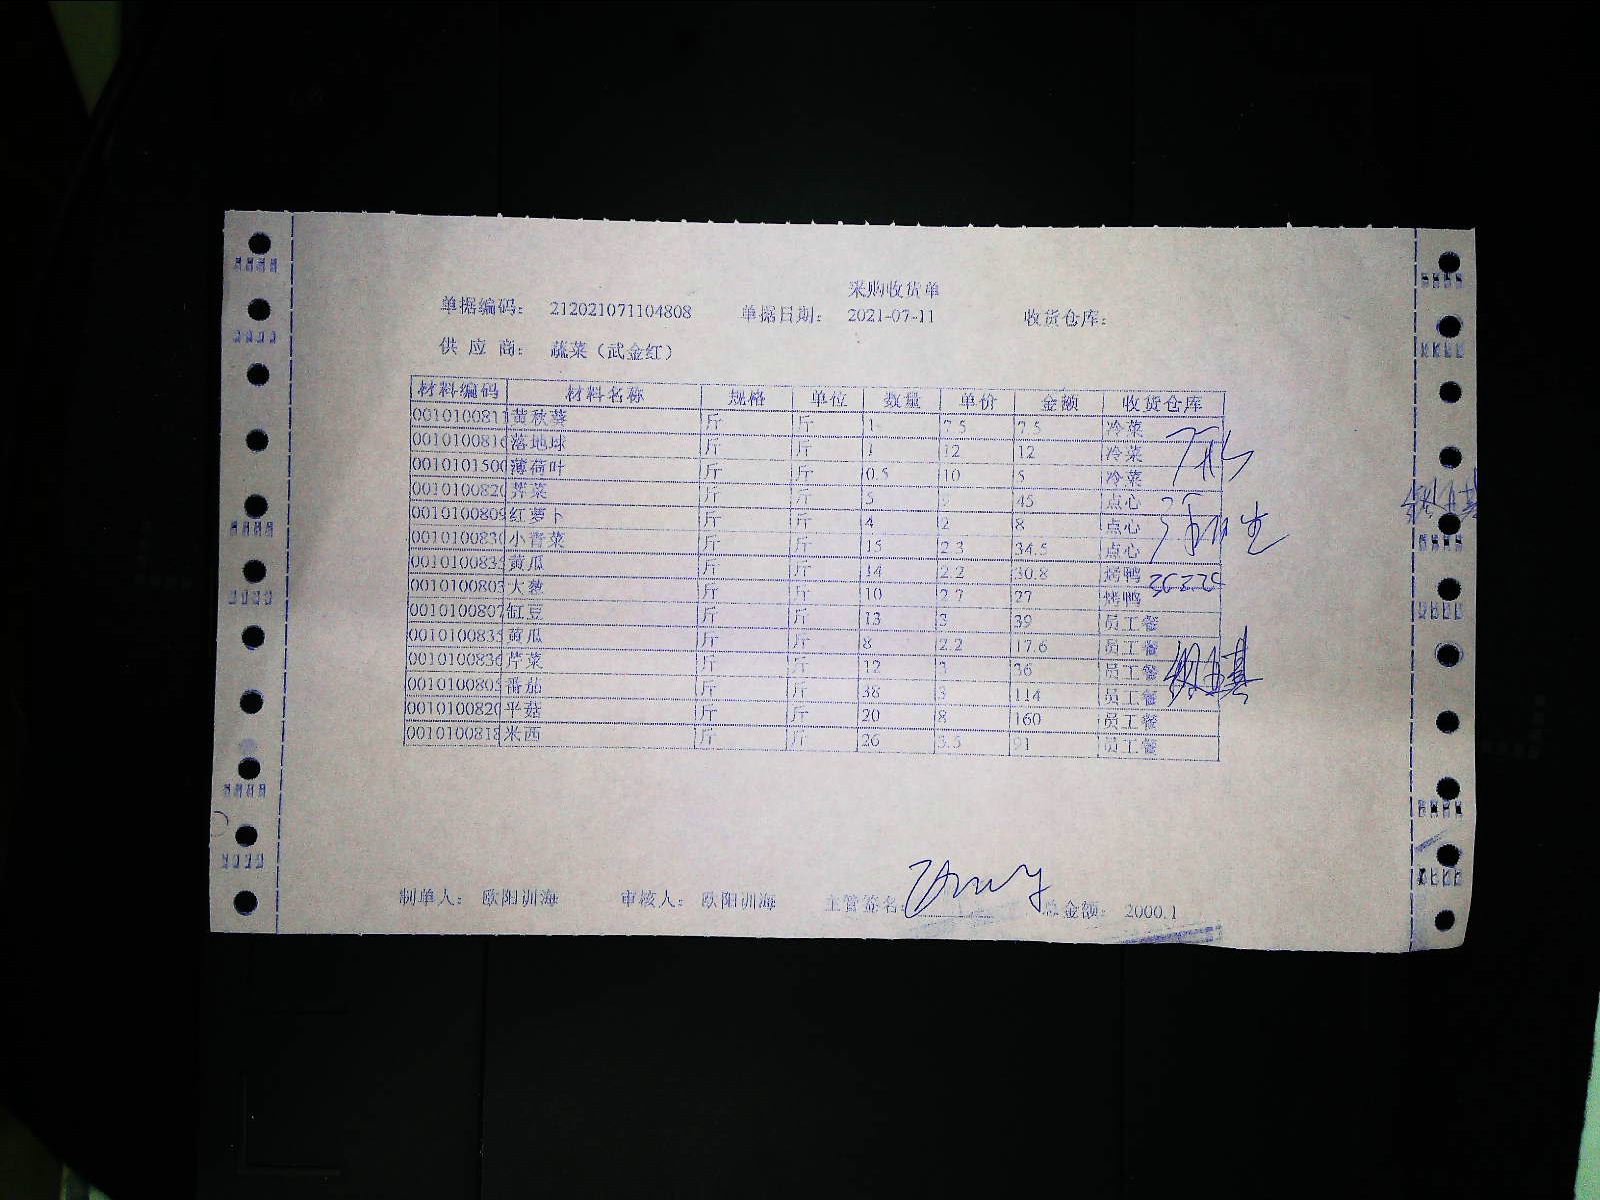 采购收货单
单据编码： 212021071104808 单据日期： 2021-07-11 收货仓库：
供 应 商： 蔬菜（武金红）
材料编码 材料名称 规格 单位 数量 单价 金额 收货仓库
0010100811 黄秋葵 斤 斤 1 7.5 7.5 冷菜
001010081 落地球 斤 斤 1 12 12 冷菜
0010101500 薄荷叶 斤 斤 0.5 10 5 冷菜
001010082 荠菜 斤 斤 5 9 45 点心
001010080 红萝卜 斤 斤 4 2 8 点心
001010083 小青菜 斤 斤 15 2.3 34.5 点心
001010083 黄瓜 斤 斤 14 2.2 30.8 烤鸭
001010080 大葱 斤 斤 10 2.7 27 烤鸭
0010100807 豇豆 斤 斤 13 3 39 员工餐
001010083 黄瓜 斤 斤 8 2.2 17.6 员工餐
001010083 芹菜 斤 斤 12 3 36 员工餐
001010080 番茄 斤 斤 38 3 114 员工餐
001010082 平菇 斤 斤 20 8 160 员工餐
001010081 米西 斤 斤 26 3.5 91 员工餐
制单人： 欧阳训海 审核人： 欧阳训海 主管签名： 总金额： 2000.1